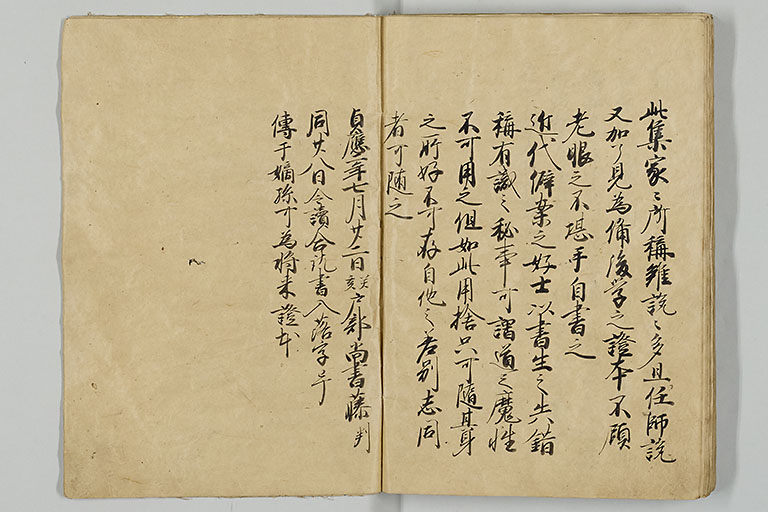 此集家々所稱雖説々多且任師説
又加了見為備後学之證本不顧
老眼之不堪手自書之
近代僻案之好士以書生之失錯
稱有識之秘事可謂道之魔性
不可用之但如此用捨只可隨其身
之所好不可存自他之差別志同
者可随之
貞應二年七月廿二日癸亥戸部尚書藤判
同廿八日令讀合訖書入落字了
傳于嫡孫可為将来證本